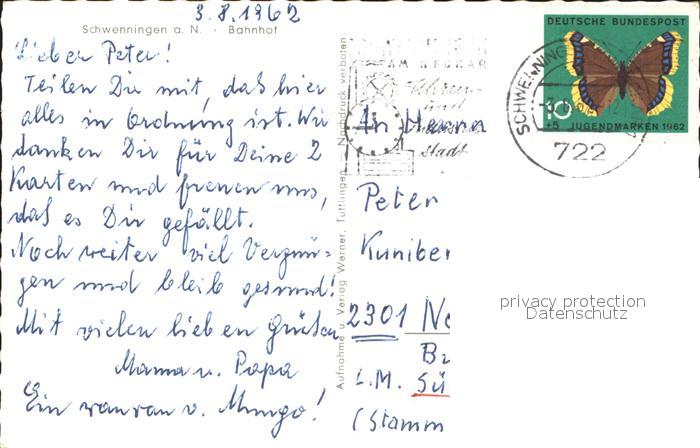 3.8.1962
Schwenningen a. N. · Bahnhof
Lieber Peter!
Teilen Dir mit, daß hier
alles in Ordnung ist. Wir
danken Dir für Deine 2
Karten und freuen uns,
daß es Dir gefällt.
Noch weiter viel Vergnü=
gen und bleib gesund!
Mit vielen lieben Grüßen
Mama u. Papa
Ein wauwau v. Mungo!
Aufnahme u. Verlag Werner, Tuttlingen Nachdruck verboten
AM NECKAR
Uhren-
und
stadt
SCHWENNING
722
DEUTSCHE BUNDESPOST
10
+5 JUGENDMARKEN 1962
An Herrn
Peter
Kuniber
2301 Ne
L.M. Sü
(Stamm
privacy protection
Datenschutz